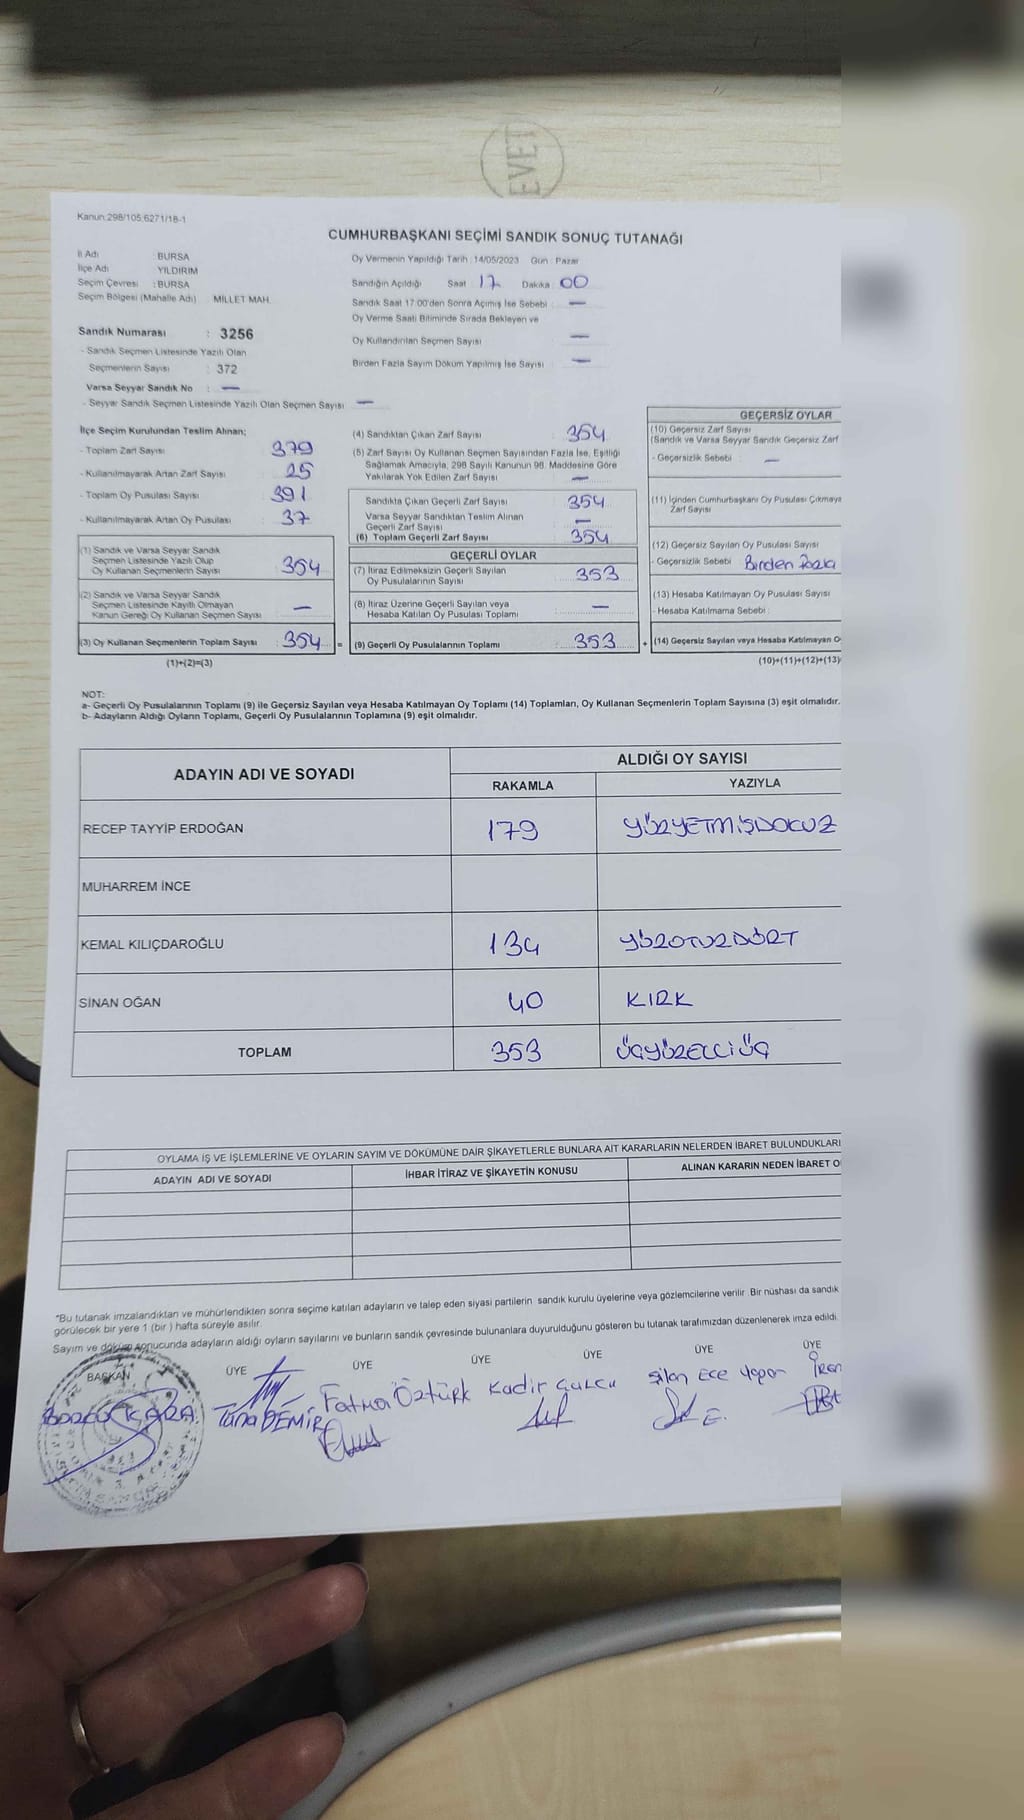 EVET
Kanun:298/105;6271/18-1
CUMHURBAŞKANI SEÇİMİ SANDIK SONUÇ TUTANAĞI
İl Adı : BURSA
İlçe Adı : YILDIRIM
Seçim Çevresi : BURSA
Seçim Bölgesi (Mahalle Adı) : MİLLET MAH.
Oy Vermenin Yapıldığı Tarih : 14/05/2023 Gün : Pazar
Sandığın Açıldığı Saat : 17 Dakika : 00
Sandık Saat 17:00'den Sonra Açımış İse Sebebi : —
Oy Verme Saati Bitiminde Sırada Bekleyen ve
Oy Kullandırılan Seçmen Sayısı : —
Birden Fazla Sayım Döküm Yapılmış İse Sayısı : —
Sandık Numarası : 3256
- Sandık Seçmen Listesinde Yazılı Olan
Seçmenlerin Sayısı : 372
Varsa Seyyar Sandık No : —
- Seyyar Sandık Seçmen Listesinde Yazılı Olan Seçmen Sayısı : —
İlçe Seçim Kurulundan Teslim Alınan;
- Toplam Zarf Sayısı : 379
- Kullanılmayarak Artan Zarf Sayısı : 25
- Toplam Oy Pusulası Sayısı : 391
- Kullanılmayarak Artan Oy Pusulası : 37
(1) Sandık ve Varsa Seyyar Sandık
Seçmen Listesinde Yazılı Olup
Oy Kullanan Seçmenlerin Sayısı : 354
(2) Sandık ve Varsa Seyyar Sandık
Seçmen Listesinde Kayıtlı Olmayan
Kanun Gereği Oy Kullanan Seçmen Sayısı : —
(3) Oy Kullanan Seçmenlerin Toplam Sayısı : 354 =
(1)+(2)=(3)
(4) Sandıktan Çıkan Zarf Sayısı : 354
(5) Zarf Sayısı Oy Kullanan Seçmen Sayısından Fazla İse, Eşitliği
Sağlamak Amacıyla, 298 Sayılı Kanunun 98. Maddesine Göre
Yakılarak Yok Edilen Zarf Sayısı : —
Sandıkta Çıkan Geçerli Zarf Sayısı : 354
Varsa Seyyar Sandıktan Teslim Alınan
Geçerli Zarf Sayısı : —
(6) Toplam Geçerli Zarf Sayısı : 354
GEÇERLİ OYLAR
(7) İtiraz Edilmeksizin Geçerli Sayılan
Oy Pusulalarının Sayısı : 353
(8) İtiraz Üzerine Geçerli Sayılan veya
Hesaba Katılan Oy Pusulası Toplamı : —
(9) Geçerli Oy Pusulalarının Toplamı : 353 +
GEÇERSİZ OYLAR
(10) Geçersiz Zarf Sayısı
(Sandık ve Varsa Seyyar Sandık Geçersiz Zarf
- Geçersizlik Sebebi : —
(11) İçinden Cumhurbaşkanı Oy Pusulası Çıkmaya
Zarf Sayısı
(12) Geçersiz Sayılan Oy Pusulası Sayısı
- Geçersizlik Sebebi Birden Fazla
(13) Hesaba Katılmayan Oy Pusulası Sayısı
- Hesaba Katılmama Sebebi :
(14) Geçersiz Sayılan veya Hesaba Katılmayan O
(10)+(11)+(12)+(13)
NOT:
a- Geçerli Oy Pusulalarının Toplamı (9) ile Geçersiz Sayılan veya Hesaba Katılmayan Oy Toplamı (14) Toplamları, Oy Kullanan Seçmenlerin Toplam Sayısına (3) eşit olmalıdır.
b- Adayların Aldığı Oyların Toplamı, Geçerli Oy Pusulalarının Toplamına (9) eşit olmalıdır.
ADAYIN ADI VE SOYADI
ALDIĞI OY SAYISI
RAKAMLA YAZIYLA
RECEP TAYYİP ERDOĞAN 179 YÜZYETMİŞDOKUZ
MUHARREM İNCE
KEMAL KILIÇDAROĞLU 134 YÜZOTUZDÖRT
SİNAN OĞAN 40 KIRK
TOPLAM 353 ÜÇYÜZELLİÜÇ
OYLAMA İŞ VE İŞLEMLERİNE VE OYLARIN SAYIM VE DÖKÜMÜNE DAİR ŞİKAYETLERLE BUNLARA AİT KARARLARIN NELERDEN İBARET BULUNDUKLARI
ADAYIN ADI VE SOYADI İHBAR İTİRAZ VE ŞİKAYETİN KONUSU ALINAN KARARIN NEDEN İBARET O
"Bu tutanak imzalandıktan ve mühürlendikten sonra seçime katılan adayların ve talep eden siyasi partilerin sandık kurulu üyelerine veya gözlemcilerine verilir. Bir nüshası da sandık
görülecek bir yere 1 (bir ) hafta süreyle asılır.
Sayım ve döküm sonucunda adayların aldığı oyların sayılarını ve bunların sandık çevresinde bulunanlara duyurulduğunu gösteren bu tutanak tarafımızdan düzenlenerek imza edildi.
BAŞKAN ÜYE ÜYE ÜYE ÜYE ÜYE ÜYE
KARA Tuna DEMİR Fatma Öztürk Kadir Ece İren